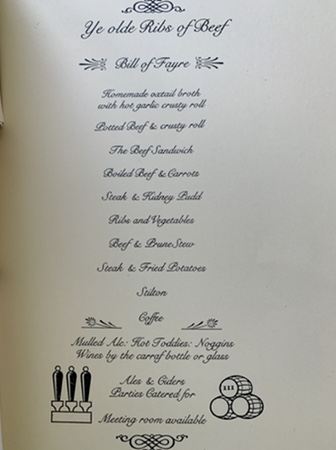 Ye olde Ribs of Beef
Bill of Fayre
Homemade oxtail broth
with hot garlic crusty roll
Potted Beef & crusty roll
The Beef Sandwich
Boiled Beef & Carrots
Steak & Kidney Pudd
Ribs and Vegetables
Beef & Prune Stew
Steak & Fried Potatoes
Stilton
Coffee
Mulled Ale: Hot Toddies: Noggins
Wines by the carraf bottle or glass
Ales & Ciders
Parties Catered for
Meeting room available
III